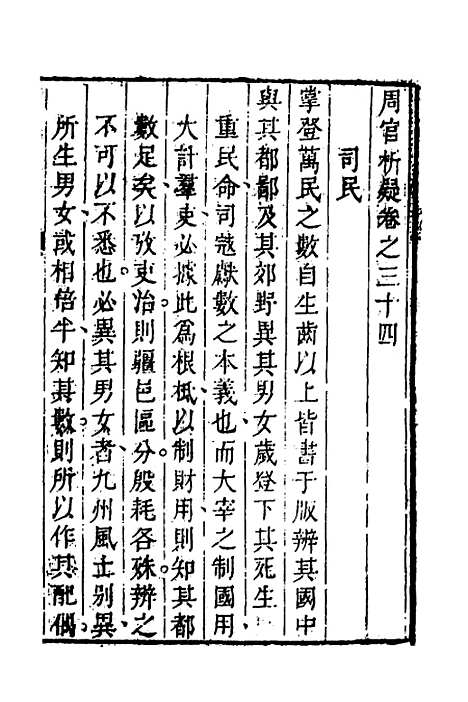 周官析疑卷之三十四
司民
掌登萬民之數自生齒以上皆書于版辨其國中
與其都鄙及其郊野異其男女歲登下其死生
重民命司寇獻數之本義也而大宰之制國用
大計羣吏必據此為根柢以制財用則知其都
數足矣以攷吏治則疆邑區分殷耗各殊辨之
不可以不悉也必異其男女者九州風土別異
所生男女或相倍半知其數則所以作其配偶